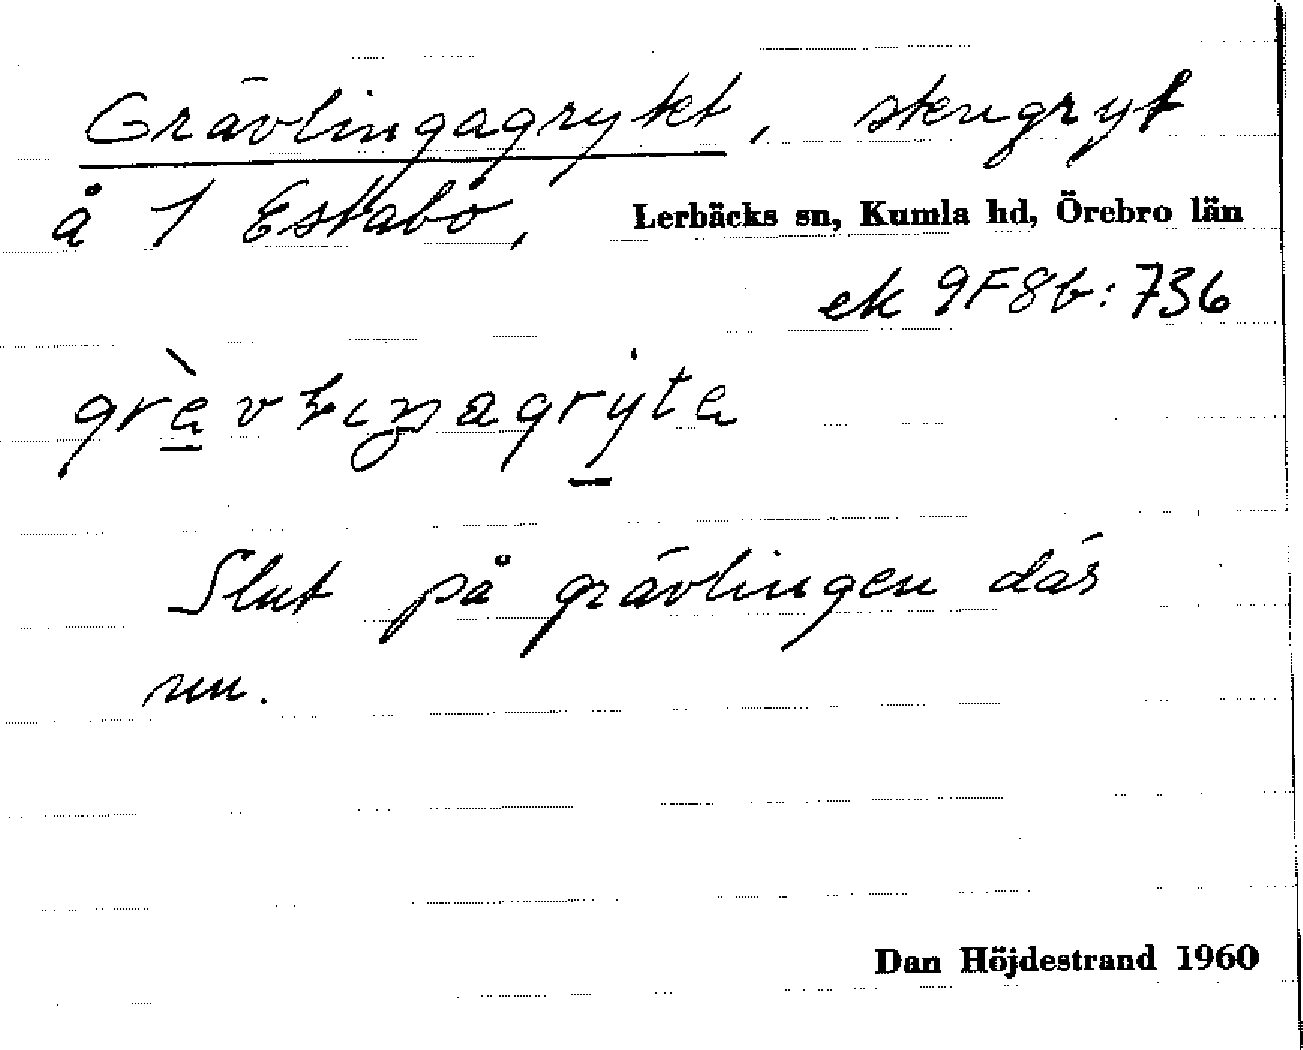 Grävlingagrytet, stengryt
å 1 Estabo, Lerbäcks sn, Kumla hd, Örebro län
ek 9F8b:736
Slut på grävlingen där
nu.
Dan Höjdestrand 1960